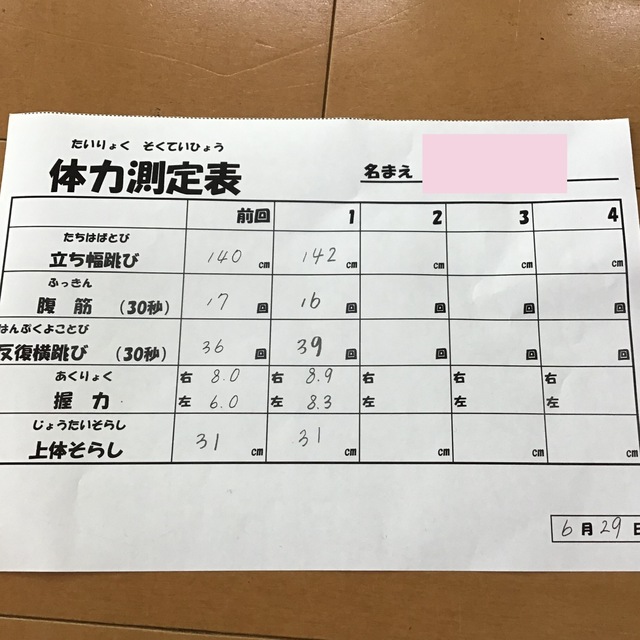 たいりょく そくていひょう
体力測定表 名まえ
前回 1 2 3 4
たちはばとび
立ち幅跳び 140 cm 142 cm cm cm cm
ふっきん
腹筋 (30秒) 17 回 16 回 回 回 回
はんぷくよことび
反復横跳び (30秒) 36 回 39 回 回 回 回
あくりょく
握力 右 8.0 右 8.9 右 右 右
左 6.0 左 8.3 左 左 左
じょうたいそらし
上体そらし 31 cm 31 cm cm cm cm
6月29日